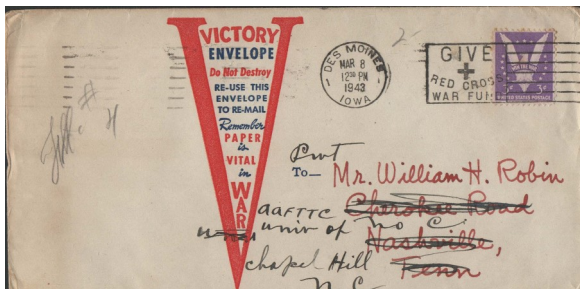 VICTORY
ENVELOPE
Do Not Destroy
RE-USE THIS
ENVELOPE
TO RE-MAIL
Remember
PAPER
is
VITAL
in
WAR
DES MOINES
MAR 8
12 30 PM
1943
IOWA
2-
GIVE
+
RED CROSS
WAR FUND
UNITED STATES POSTAGE
3¢
Pvt
To— Mr. William H. Robin
Cherokee Road
AAFTTC
univ of No C.
Nashville,
Chapel Hill
Tenn
N.C.